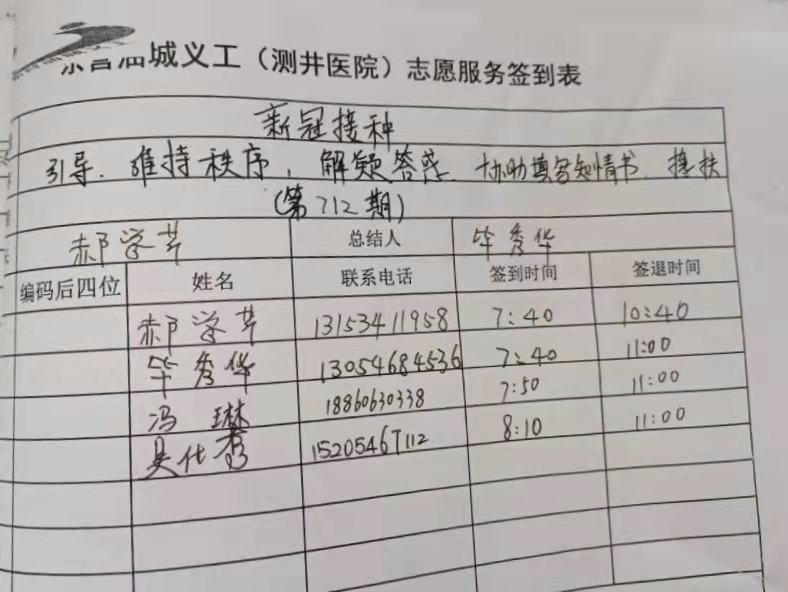 东营油城义工（测井医院）志愿服务签到表
新冠接种
引导、维持秩序、解疑答惑、协助填写知情书、搀扶
（第712期）
郝学芹 总结人 毕秀华
编码后四位 姓名 联系电话 签到时间 签退时间
郝学芹 13153411958 7:40 10:40
毕秀华 13054684536 7:40 11:00
冯琳 18860630338 7:50 11:00
吴仕秀 15205467112 8:10 11:00